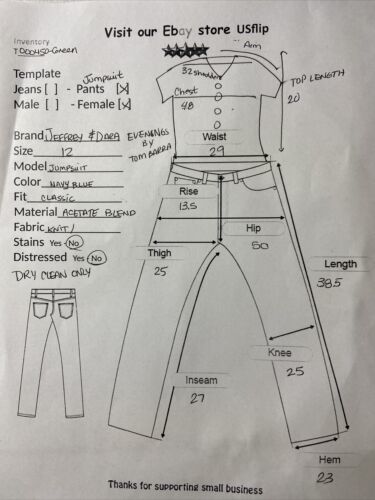 Visit our Ebay store USflip
Inventory
T000450-Green
Arm
Template Jumpsuit
Jeans [ ] - Pants [X]
Male [ ] - Female [X]
32 shoulders
Chest
48
TOP LENGTH
20
Brand JEFFREY & DARA EVENINGS BY TOM BARRA
Size 12
Model JUMPSUIT
Color NAVY BLUE
Fit CLASSIC
Material ACETATE BLEND
Fabric KNIT/
Stains Yes - No
Distressed Yes - No
DRY CLEAN ONLY
Waist
29
Rise
13.5
Hip
50
Thigh
25
Length
38.5
Knee
25
Inseam
27
Hem
23
Thanks for supporting small business